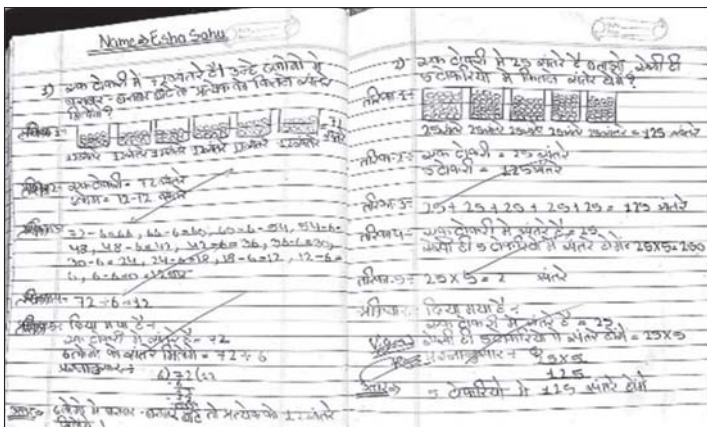 Name → Esha Sahu
3) एक टोकरी में 72 संतरे है। उन्हे 6 लोगो में
बराबर-बराबर बाटे तो प्रत्येक को कितने संतरे
मिलेंगे?
12 संतरे 12 संतरे 12 संतरे 12 संतरे 12 संतरे 12 संतरे
एक टोकरी = 72 संतरे
72-6=66, 66-6=60, 60-6=54, 54-6=
48, 48-6=42, 42-6=36, 36-6=30,
30-6=24, 24-6=18, 18-6=12, 12-6=
6, 6-6=0
72÷6=12
दिया गया है-
एक टोकरी में संतरे है = 72
6 लोगो को संतरे मिलेंगे = 72÷6
प्रश्नानुसार→
6)72(12
उत्तर→ 6 लोगो में बराबर-बराबर बाटे तो प्रत्येक को 12 संतरे
मिलेंगे।
2) एक टोकरी में 25 संतरे है बताओ ऐसी ही
5 टोकरियो में कितने संतरे होंगे?
तरिका-1-
25 संतरे 25 संतरे 25 संतरे 25 संतरे 25 संतरे = 125 संतरे
तरिका-2- एक टोकरी = 25 संतरे
5 टोकरी = 125 संतरे
तरिका-3- 25+25+25+25+25 = 125 संतरे
तरिका-4- एक टोकरी में संतरे है = 25
ऐसी ही 5 टोकरियो में संतरे होंगे = 25×5=250
तरिका-5- 25×5=2 संतरे
दिया गया है-
एक टोकरी में संतरे है = 25
ऐसी ही 5 टोकरियो में संतरे होंगे = 25×5
प्रश्नानुसार→
25×5
125
उत्तर→ 5 टोकरियो में 125 संतरे होंगे